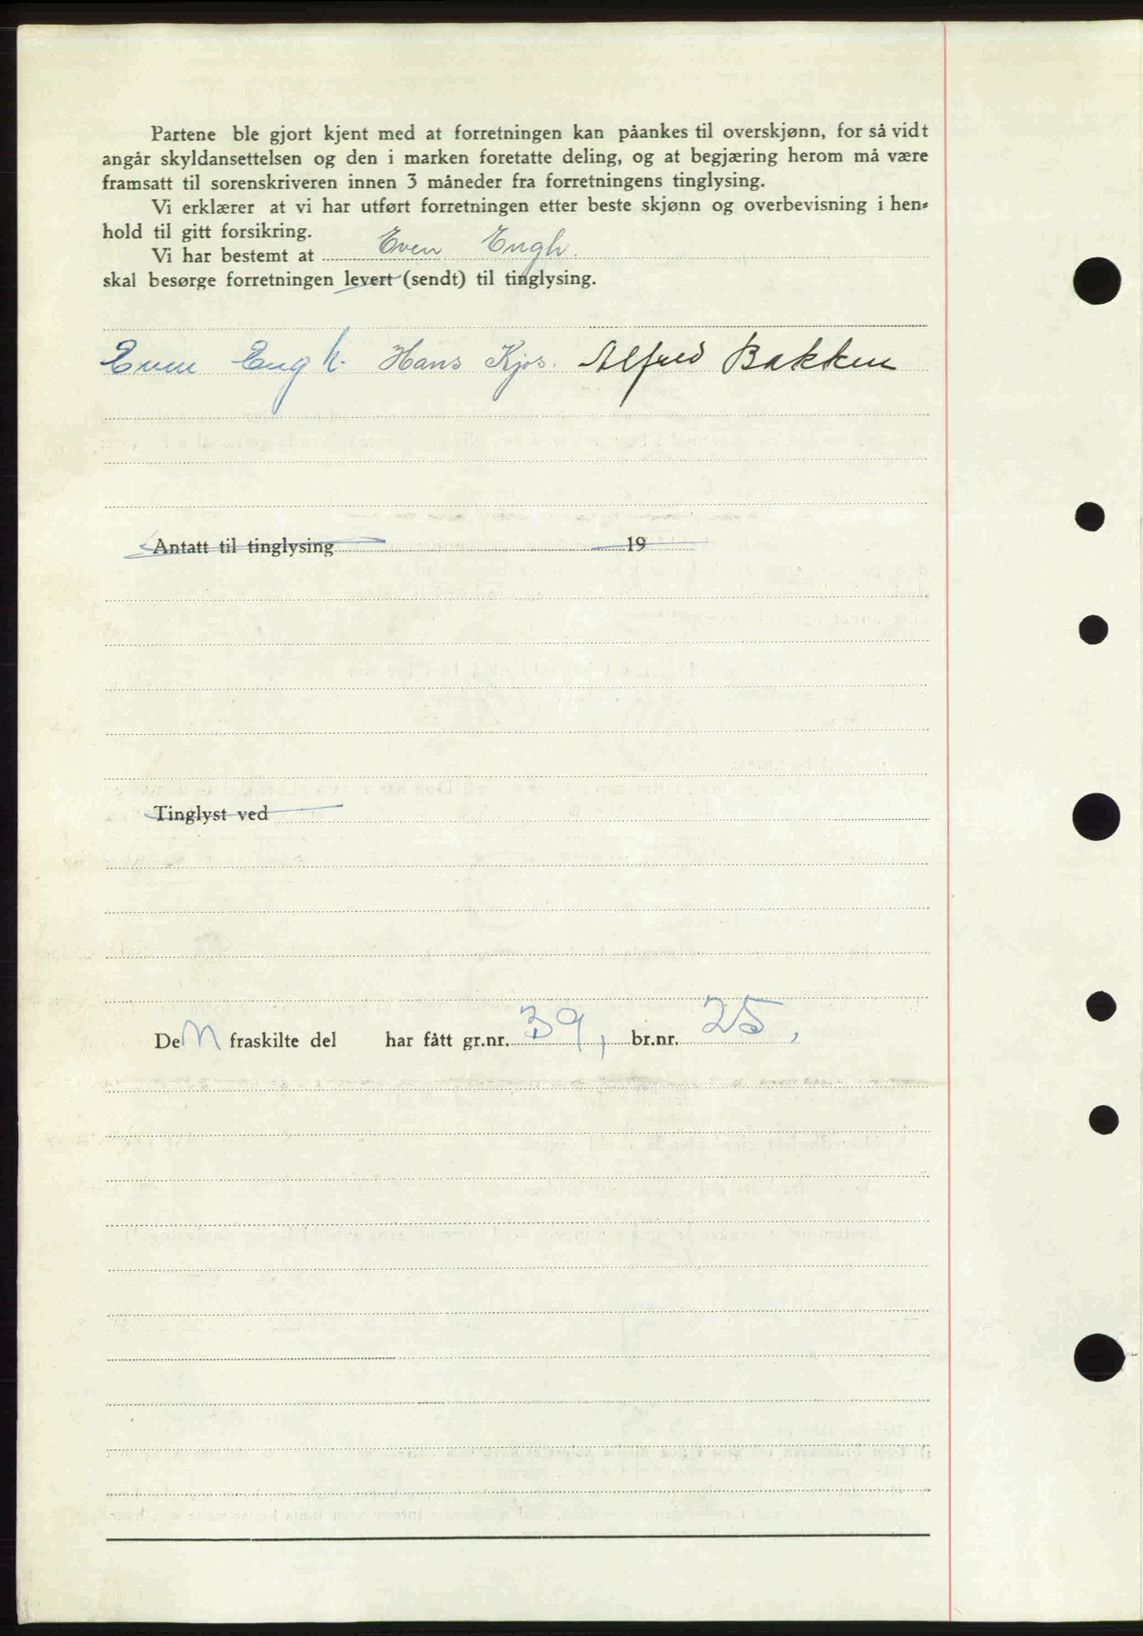 Partene ble gjort kjent med at forretningen kan påankes til overskjønn, for så vidt
angår skyldansettelsen og den i marken foretatte deling, og at begjæring herom må være
framsatt til sorenskriveren innen 3 måneder fra forretningens tinglysing.
Vi erklærer at vi har utført forretningen etter beste skjønn og overbevisning i hen=
hold til gitt forsikring.
Vi har bestemt at Even Engh.
skal besørge forretningen levert (sendt) til tinglysing.
Even Engh. Hans Kjos. Alfred Bakken
Antatt til tinglysing 19
Tinglyst ved
Den fraskilte del har fått gr.nr. 39, br.nr. 25,